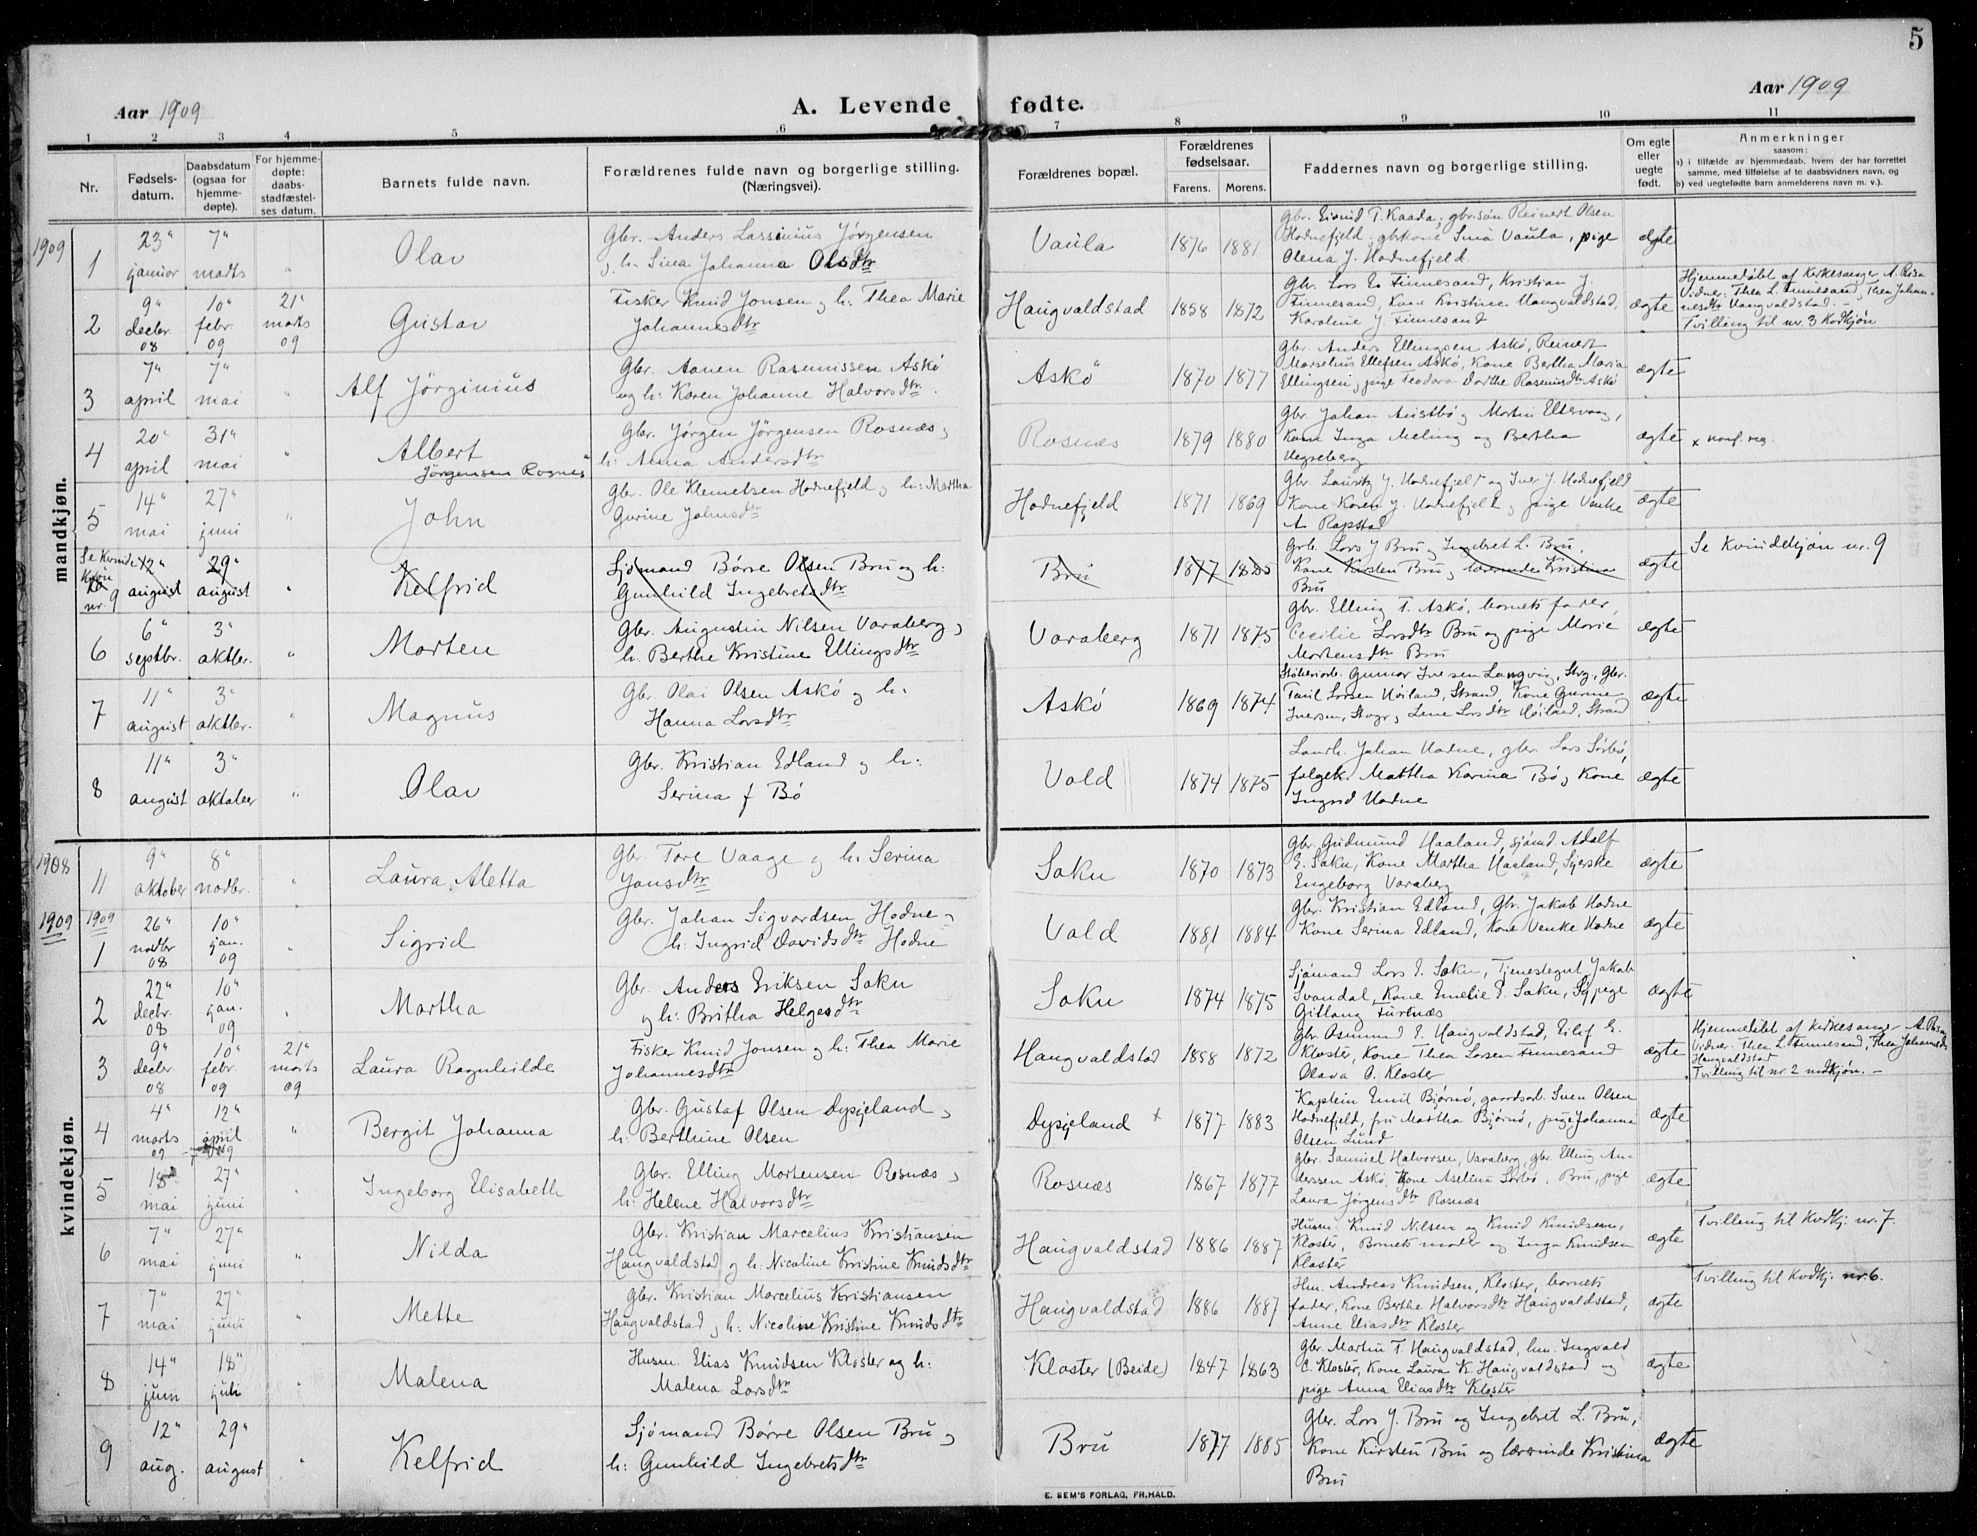 5
Aar 1909
A. Levende fødte.
Aar 1909
1 2 3 4 5 6 7 8 9 10 11
Nr.
Fødsels-
datum.
Daabsdatum
(ogsaa for
hjemme-
døpte).
For hjemme-
døpte:
daabs-
stadfæstel-
ses datum.
Barnets fulde navn.
Forældrenes fulde navn og borgerlige stilling.
(Næringsvei).
Forældrenes bopæl.
Forældrenes
fødselsaar.
Farens. Morens.
Faddernes navn og borgerlige stilling.
Om egte
eller
uegte
født.
Anmerkninger
saasom:
a) i tilfælde av hjemmedaab, hvem der har forrettet
samme, med tilføielse af to daabsvidners navn, og
b) ved uegtefødte barn anmelderens navn m. v.).
mandkjøn.
1909
1
23"
januar
7"
marts
"
Olav
Gbr. Anders Lassinius Jörgensen
, h. Sina Johanna Olsdtr
Vaula
1876 1881
Gbr. Eivind T. Kaada, gbr.søn Reinert Olsen
Hodnefjeld, gbrkone Sina Vaula, pige
Olena J. Hodnefjeld
ægte
2
9"
decbr.
08
10"
febr.
09
21"
marts
09
Gustav
Fisker Knud Jonsen og h: Thea Marie
Johannesdtr
Haugvaldstad
1858 1872
Gbr. Lars E. Finnesand, Kristian J.
Finnesand, Kone Kristine Haugvaldstad,
Karoline J. Finnesand
ægte
Hjemmedøbt af Kirkesanger A. Reia
Vidner: Thea L. Finnesand, Thea Johan-
nesdtr Haugvaldstad. -
Tvilling til nr. 3 Kvdkjøn
3
7"
april
7"
mai
"
Alf Jörginius
Gbr. Aanen Rasmussen Askö
og h: Karen Johanne Halvorsdtr.
Askö
1870 1877
Gbr. Anders Ellingsen Askö, Reinert
Marselius Ellefsen Askö, Kone Bertha Maria
Ellingsen, pige Teodora Dorthe Rasmusdtr Askö
ægte
4
20"
april
31"
mai
"
Albert
Jörgensen Rosnes
Gbr. Jörgen Jörgensen Rosnæs,
h: Anna Andersdtr
Rosnæs
1879 1880
Gbr. Johan Austbö, Martin Eltervaag,
Kone Inga Meling og Bertha
ægte
x konf. reg.
5
14"
mai
27"
juni
"
John
Gbr. Ole Klemetsen Hodnefjeld , h: Martha
Gurine Johnsdtr
Hodnefjeld
1871 1869
Gbr. Lauritz J. Hodnefjeld og Iver J. Hodnefjeld
Kone Karen J. Hodnefjeld, pige Venke
A. Rapstad
ægte
Se Kvinde
Kjøn
nr. 9
12"
august
29"
august
"
Kelfrid
Sjömand Börre Olsen Bru og h:
Gunhild Ingebretsdtr
Bru
1877 1885
Grb. Lars J Bru , Ingebret L. Bru,
Kone Kirsten Bru , lærerinde Kristina
Bru
ægte
Se Kvindekjøn nr. 9
6
6"
septbr.
3"
oktbr.
"
Morten
Gbr. Augustin Nilsen Varaberg,
h. Berthe Kristine Ellingsdtr
Varaberg
1871 1875
Gbr. Elling T. Askö, barnets fader,
Cecilie Larsdtr Bru og pige Marie
Mortensdtr Bru
ægte
7
11"
august
3"
oktbr.
"
Magnus
Gbr. Olai Olsen Askö og h:
Hanna Larsdtr
Askö
1869 1874
Støberiarb. Gunvor Iversen Langvig, Stvg, Gbr.
Taril Larsen Höiland, Strand, Kone Gurine
Iversen, Stvgr, Lene Larsdtr Höiland, Strand
ægte
8
11"
august
3"
oktober
"
Olav
Gbr. Kristian Edland og h:
Serina f Bö
Vold
1874 1875
Landh. Johan Hodne, gbr. Lars Sörbö,
folgek. Martha Karina Bö, Kone
Ingrid Hodne
ægte
kvindekjøn.
1908
11
9"
oktober
8"
novbr.
"
Laura Aletta
Gbr. Tore Vaage og h: Serina
Jonsdtr
Soku
1870 1873
Gbr. Gudmund Haaland, sjömd. Adolf
E. Soku, Kone Martha Haaland, Syerske
Engeborg Varaberg
ægte
1909
1909
1
26"
novbr
08
10"
jan.
09
"
Sigrid
Gbr. Johan Sigvardsen Hodne,
h: Ingrid Davidsdtr Hodne
Vold
1881 1884
Gbr. Kristian Edland, Gbr. Jakob Hodne
Kone Serina Edland, Kone Venke Hodne
ægte
2
22"
decbr.
08
10"
jan.
09
"
Martha
Gbr. Anders Eriksen Soku
og h: Britha Helgesdtr
Soku
1874 1875
Sjömand Lars E. Soku, Tjenestegut Jakob
Svandal, Kone Emelie E. Soku, Sypige
Gitlaug Furenæs
ægte
3
9"
decbr
08
10"
febr.
09
21"
marts
09
Laura Ragnhilde
Fisker Knud Jonsen og h: Thea Marie
Johannesdtr
Haugvaldstad
1858 1872
Gbr. Osmund E. Haugvaldstad, Eilef E.
Kloster, Kone Thea Larsen Finnesand
Olava O. Kloster
ægte
Hjemmedøbt af Kirkesanger A. Reia
Vidner: Thea L. Finnesand, Thea Johannesdtr
Haugvaldstad
Tvilling til nr 2 mdkjøn. -
4
4"
marts
09
12"
april
"
Bergit Johanna
Gbr. Gustaf Olsen Dysjeland,
h: Berthine Olsen
Dysjeland x
1877 1883
Kaptein Emil Bjørnø, gaardsarb. Sven Olsen
Hodnefjeld, fru Martha Bjørnø, pige Johanna
Olsen Lund
ægte
5
18"
mai
27"
juni
"
Ingeborg Elisabeth
Gbr. Elling Mortensen Rosnæs,
h: Helene Halvorsdtr
Rosnæs
1867 1877
Gbr. Samuel Halvorsen, Varaberg, gbr. Elling An-
derssen Askö, Kone Aselina Sörbö, Bru, pige
Laura Jørgensdtr Rosnæs
ægte
6
7"
mai
27"
juni
"
Nilda
Gbr. Kristian Marcelius Kristiansen
Haugvaldstad og h: Nicoline Kristine Knudsdtr
Haugvaldstad
1886 1887
Husm. Knud Nilsen og Knud Knudsen,
Kloster, Barnets moder og Inga Knudsen
Kloster
ægte
Tvilling til Kvdkj. nr. 7.
7
7"
mai
27"
juni
"
Mette
Gbr. Kristian Marcelius Kristiansen
Haugvaldstad , h: Nicoline Kristine Knudsdtr
Haugvaldstad
1886 1887
Hm. Andreas Knudsen, Kloster, barnets
fader, Kone Berthe Halvorsdtr Haugvaldstad,
Anne Eliasdtr Kloster
ægte
Tvilling til Kvdkj. nr. 6.
8
14"
juni
18"
juli
"
Malena
Husm. Elias Knudsen Kloster og h:
Malena Larsdtr
Kloster (Beide)
1847 1863
Gbr. Martin T. Haugvaldstad, hm. Ingvald
E. Kloster, Kone Laura K. Haugvaldstad og
pige Anna Eliasdtr Kloster
ægte
9
12"
aug.
29"
august
"
Kelfrid
Sjömand Börre Olsen Bru ,
h: Gunhild Ingebretsdtr
Bru
1877 1885
Gbr. Lars J. Bru og Ingebret L. Bru,
Kone Kirsten Bru og lærerinde Kristina
Bru
ægte
E. SEM'S FORLAG, FR.HALD.